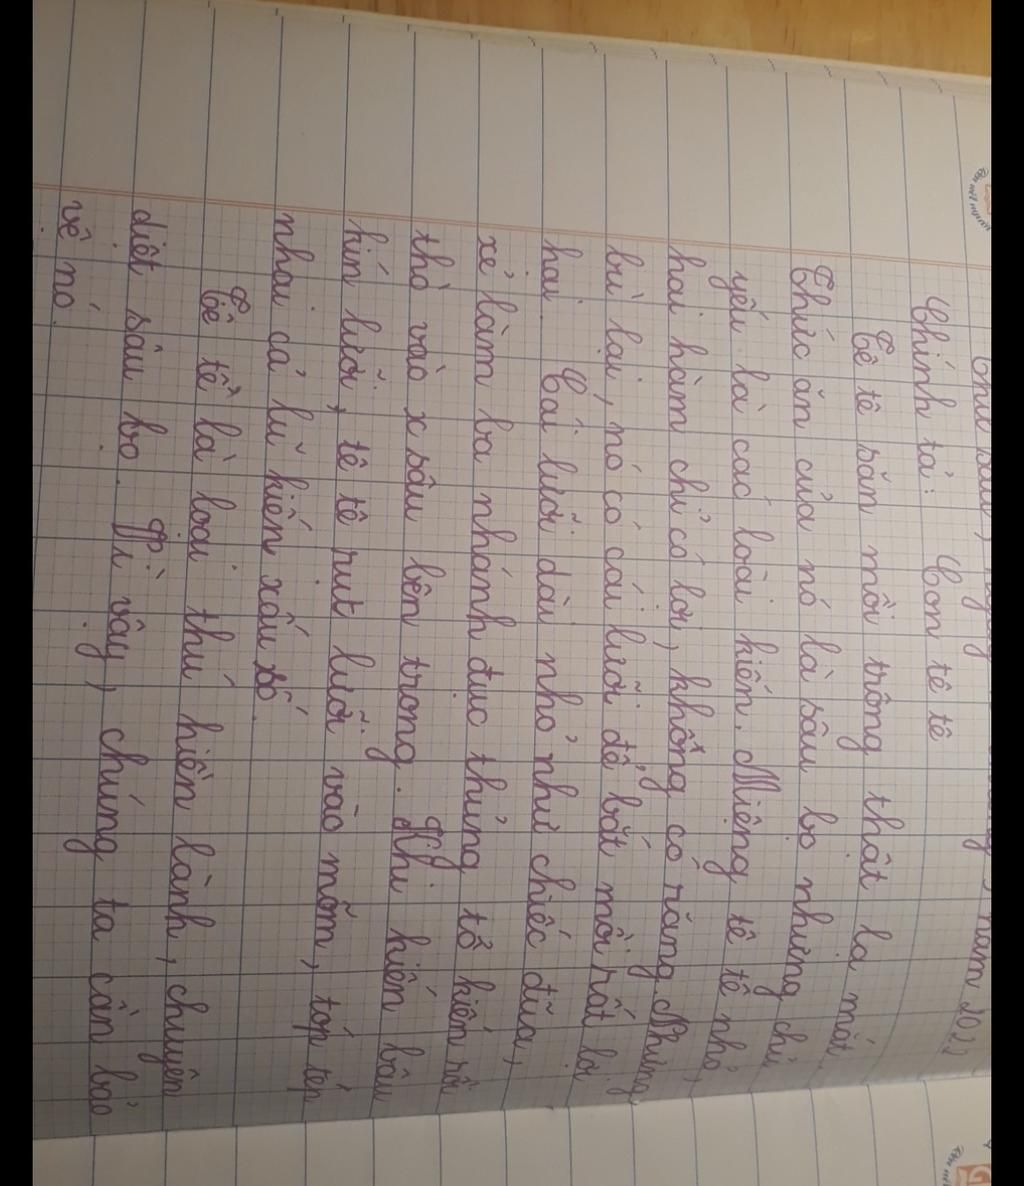 năm 2022
Chính tả: Con tê tê
Tê tê săn mồi trông thật lạ mắt.
Thức ăn của nó là sâu bọ nhưng chủ
yếu là các loài kiến. Miệng tê tê nhỏ,
hai hàm chỉ có lợi, không có răng. Nhưng
bù lại, nó có cái lưỡi để bắt mồi rất lợi
hại. Cái lưỡi dài nhỏ như chiếc đũa,
xẻ làm ba nhánh đục thủng tổ kiến rồi
thò vào sâu bên trong. Khi kiến bâu
kín lưỡi, tê tê rút lưỡi vào mõm, tóp tép
nhai cả lũ kiến xấu số.
Tê tê là loài thú hiền lành, chuyên
diệt sâu bọ. Vì vậy, chúng ta cần bảo
vệ nó.